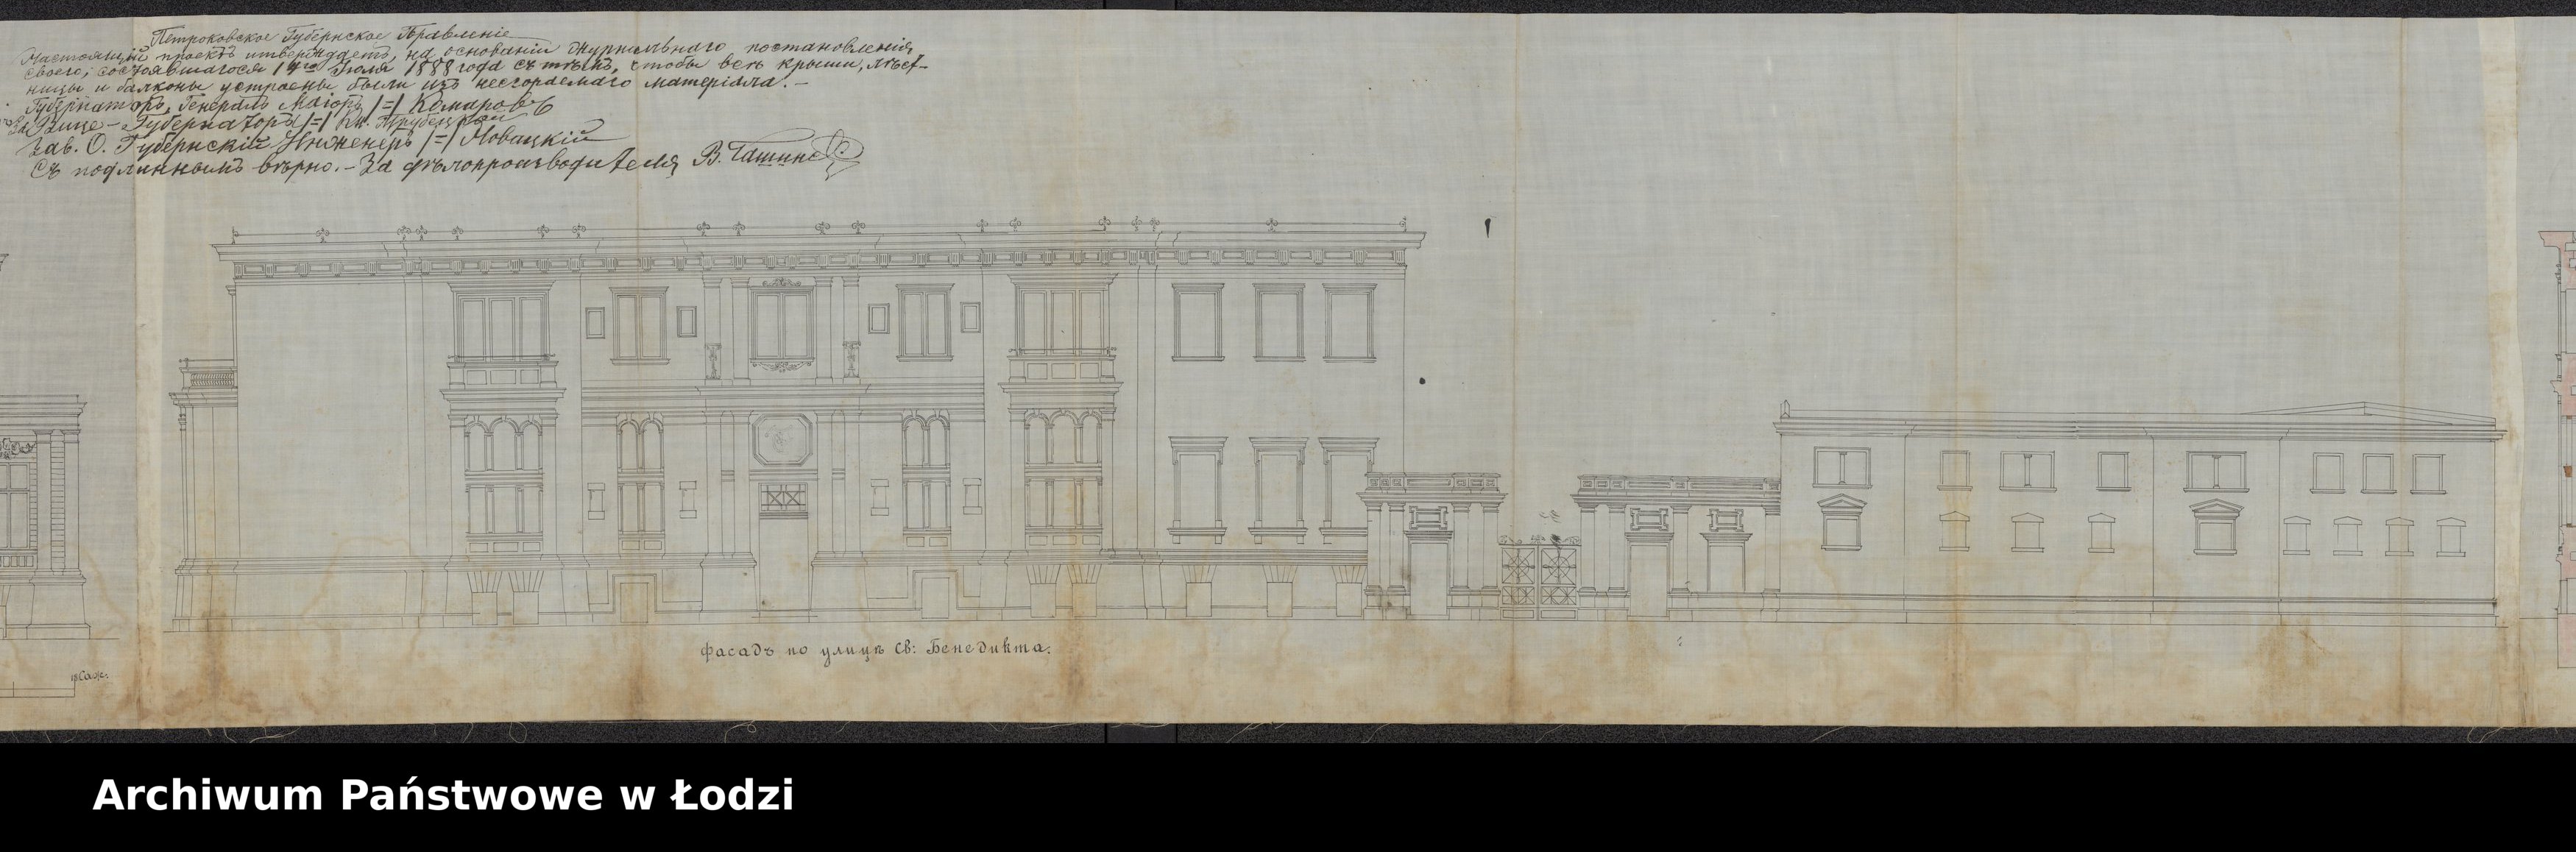 Петроковское Губернское Правленіе
Настоящій проектъ утверждаетъ, на основаніи журнальнаго постановленія
своего, состоявшагося 14го Іюля 1888 года съ тѣмъ, чтобы всѣ крыши, лѣст-
ницы и балконы устроены были изъ несгораемаго матеріала. –
Губернаторъ, Генералъ Маіоръ /=/ Комаровъ
За Вице – Губернатора /=/ Кн. Трубецкой
Зав. О. Губернскій Инженеръ /=/ Новацкій
Съ подлиннымъ вѣрно. – За дѣлопроизводителя В.
Фасадъ по улицѣ Св: Бенедикта.
Саж.
Archiwum Państwowe w Łodzi